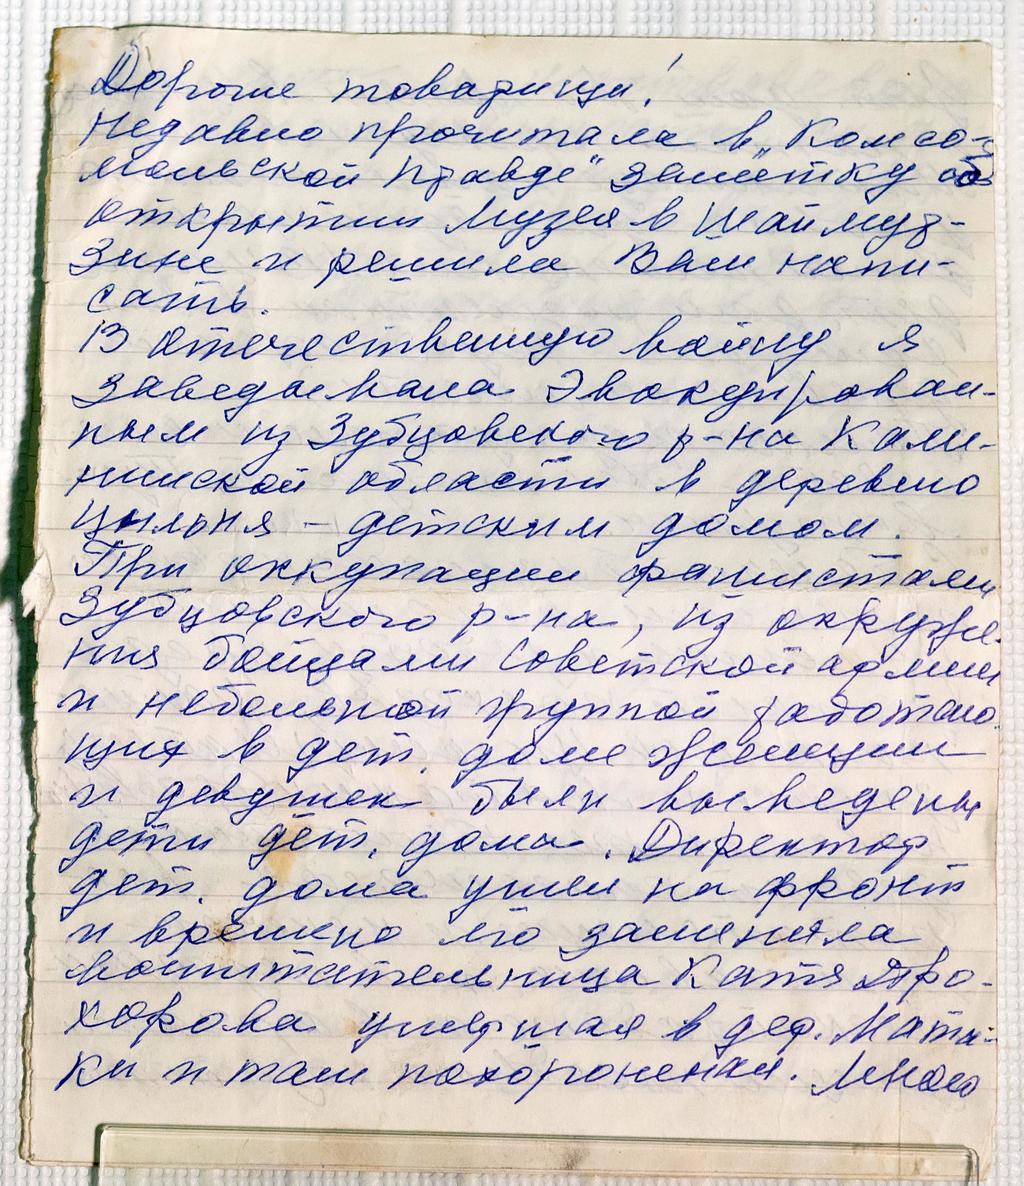 Дорогие товарищи!
Недавно прочитала в „Комсо-
мольской Правде" заметку об
открытии музея в Шаймур-
зине и решила Вам напи-
сать.
В отечественную войну я
заведывала Эвакуирован-
ным из Зубцовского р-на Кали-
нинской области в деревню
Цильня – детским домом.
При оккупации фашистами
Зубцовского р-на, из окруже-
ния бойцами Советской армии
и небольшой группой работаю-
щих в дет. доме женщин
и девушек были выведены
дети дет. дома. Директор
дет. дома ушел на фронт
и времено его заменила
воспитательница Катя Про-
хорова умершая в дер. Мата-
ки и там похороненая. Много